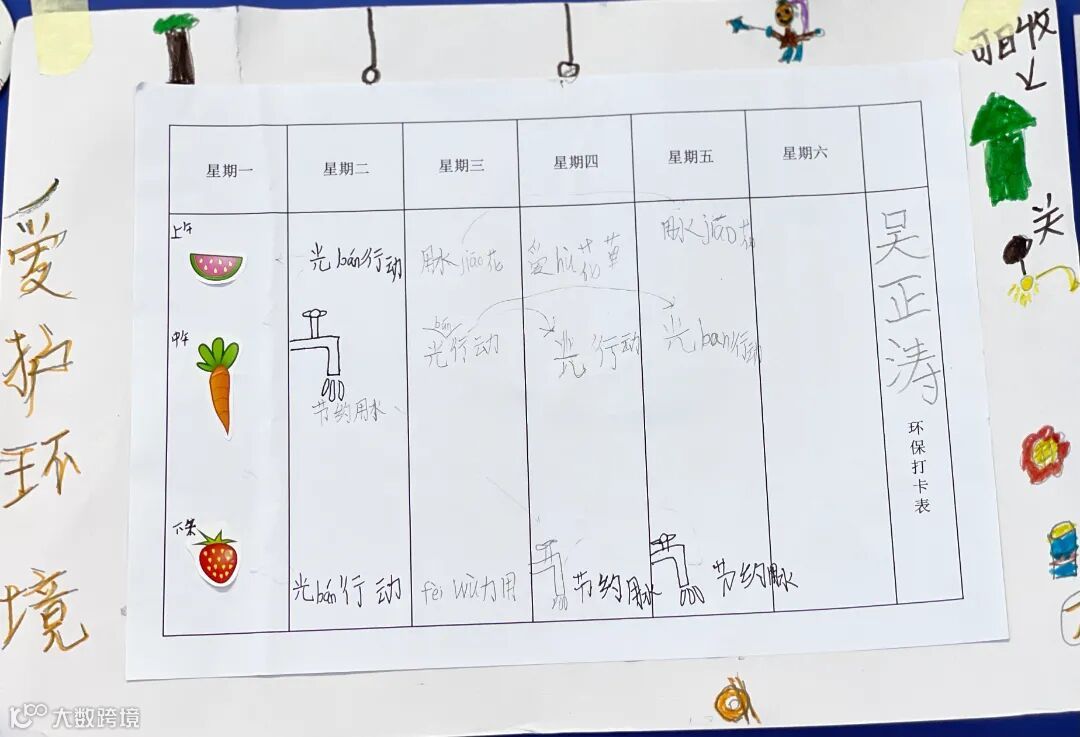 可回收
爱护环境
星期一 星期二 星期三 星期四 星期五 星期六
上午
光bán行动
用水jiāo花
爱hù花草
用水jiāo花
吴正涛
关
中午
节约用水
光bán行动
光行动
光bán行动
环保打卡表
下午
光bán行动
fèi wù力用
节约用水
节约用水
大数跨境